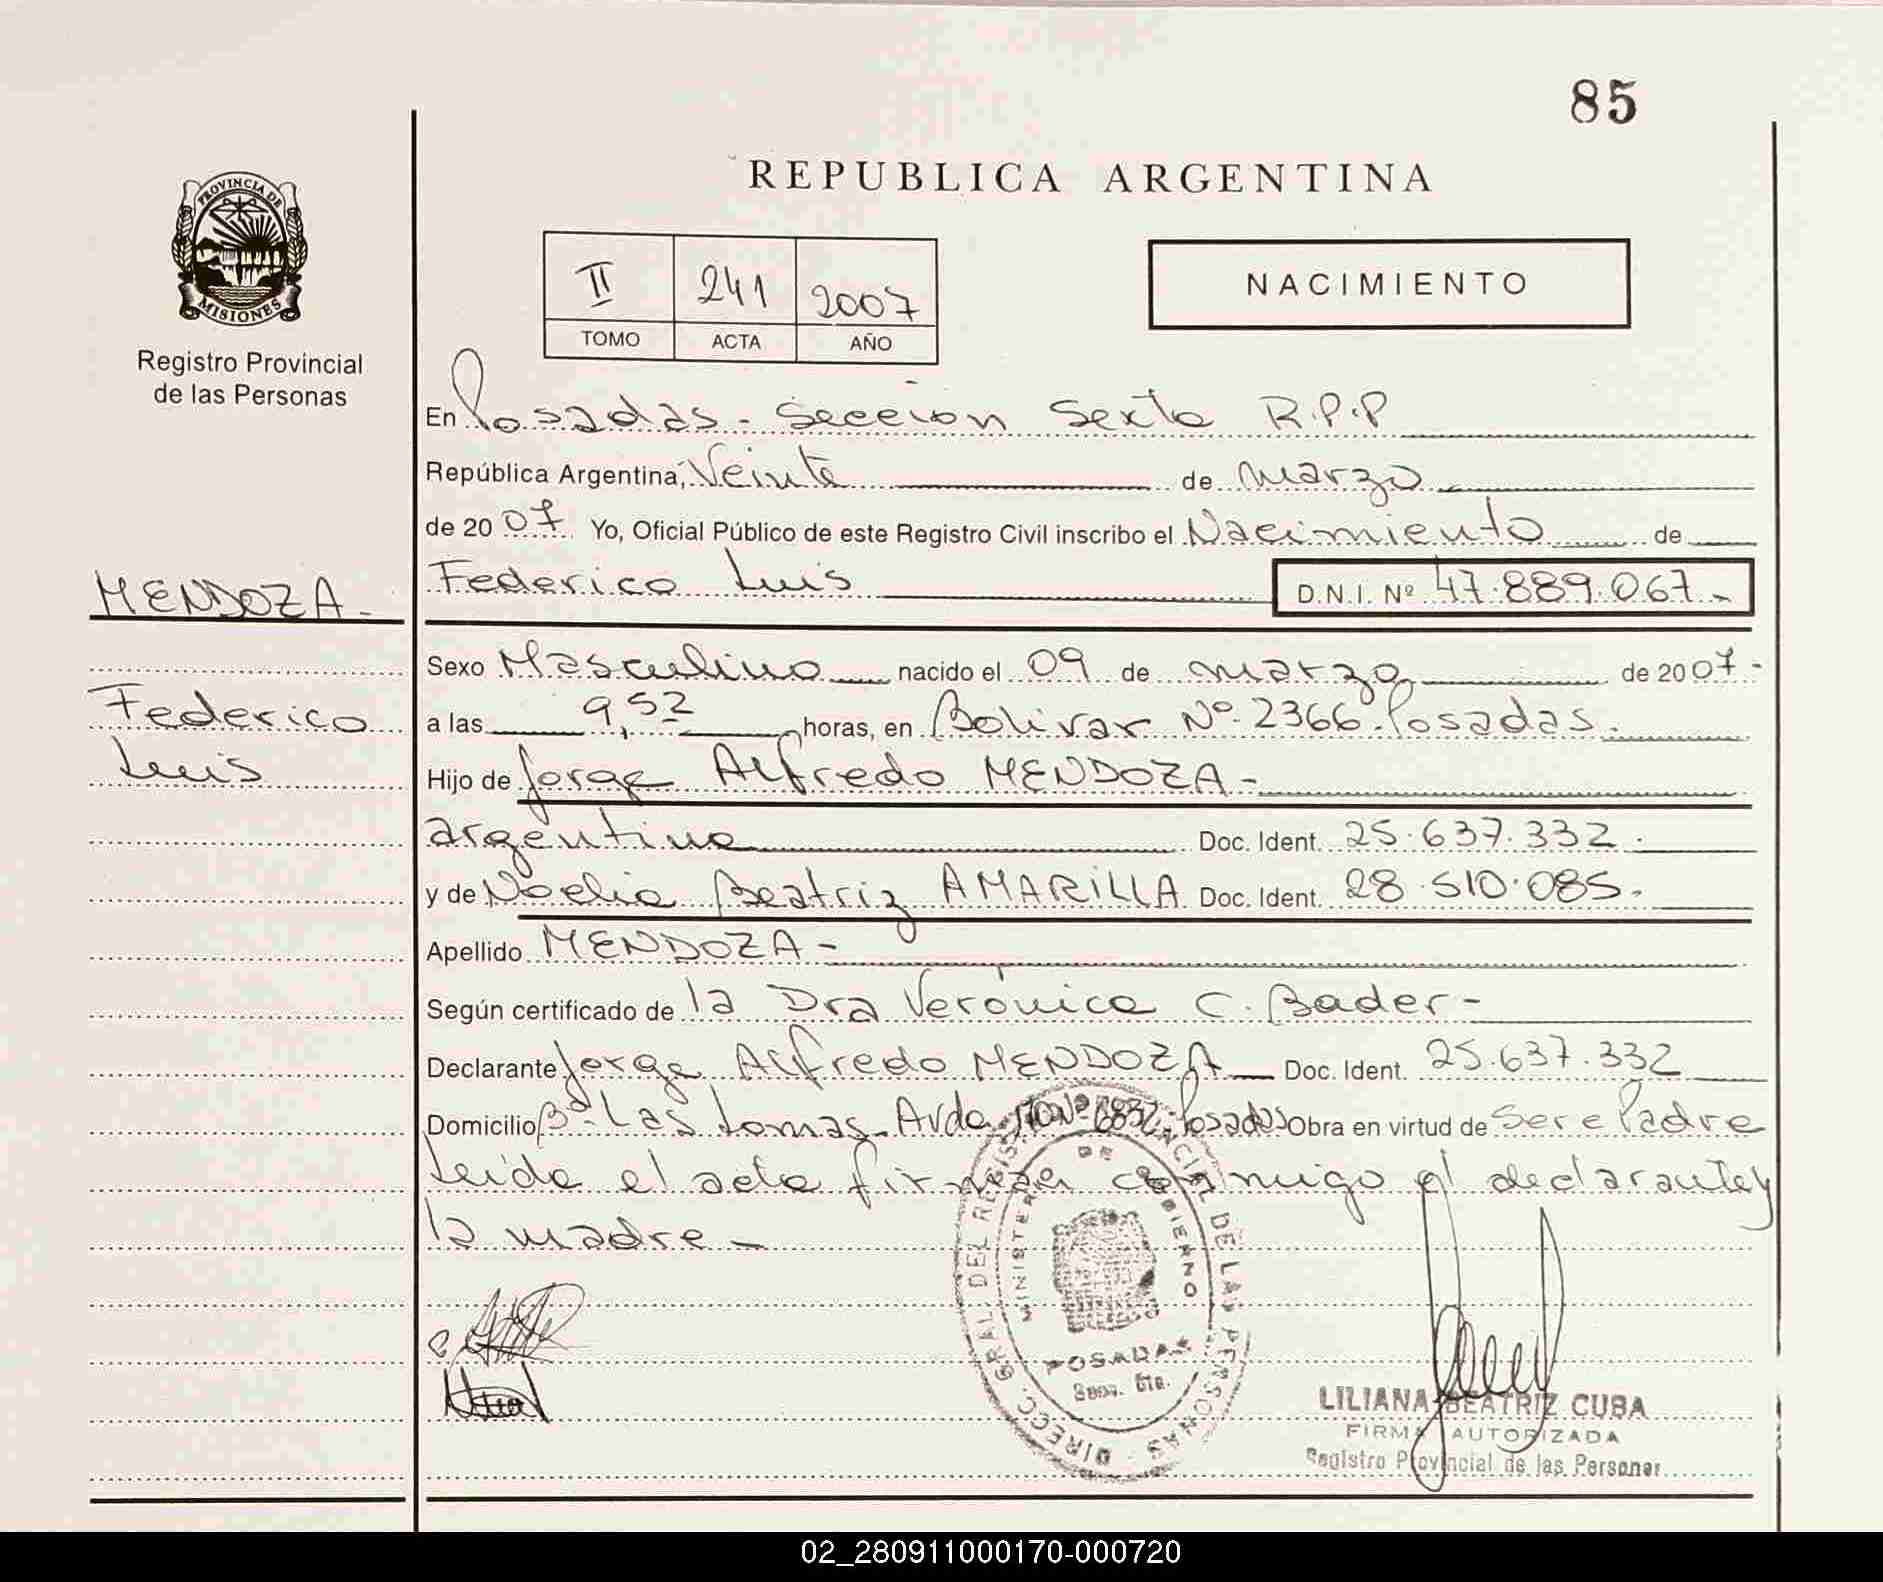 85
REPUBLICA ARGENTINA
PROVINCIA DE
MISIONES
Registro Provincial
de las Personas
II 241 2007
TOMO ACTA AÑO
NACIMIENTO
En Posadas - Sección Sexta R.P.P
República Argentina, Veinte de marzo
de 2007 Yo, Oficial Público de este Registro Civil inscribo el Nacimiento de
MENDOZA -
Federico Luis D.N.I. Nº 47.889.067.-
Sexo Masculino nacido el 09 de marzo de 2007-
Federico
a las 9,52 horas, en Bolivar Nº 2366 Posadas.
Luis
Hijo de Jorge Alfredo MENDOZA -
argentino Doc. Ident. 25.637.332.
y de Noelia Beatriz AMARILLA Doc. Ident. 28.510.085.
Apellido MENDOZA -
Según certificado de la Dra Verónica C. Bader -
Declarante Jorge Alfredo MENDOZA Doc. Ident. 25.637.332
Domicilio Bº Las Lomas Avda Nº 6832 Posadas Obra en virtud de Ser el Padre
Leída el acta firman conmigo el declarante y
la madre -
DIRECC. GRAL. DEL REGISTRO PROVINCIAL DE LAS PERSONAS
MINISTERIO DE GOBIERNO
POSADAS
Secc. 6ta.
LILIANA BEATRIZ CUBA
FIRMA AUTORIZADA
Registro Provincial de las Personas
02_280911000170-000720